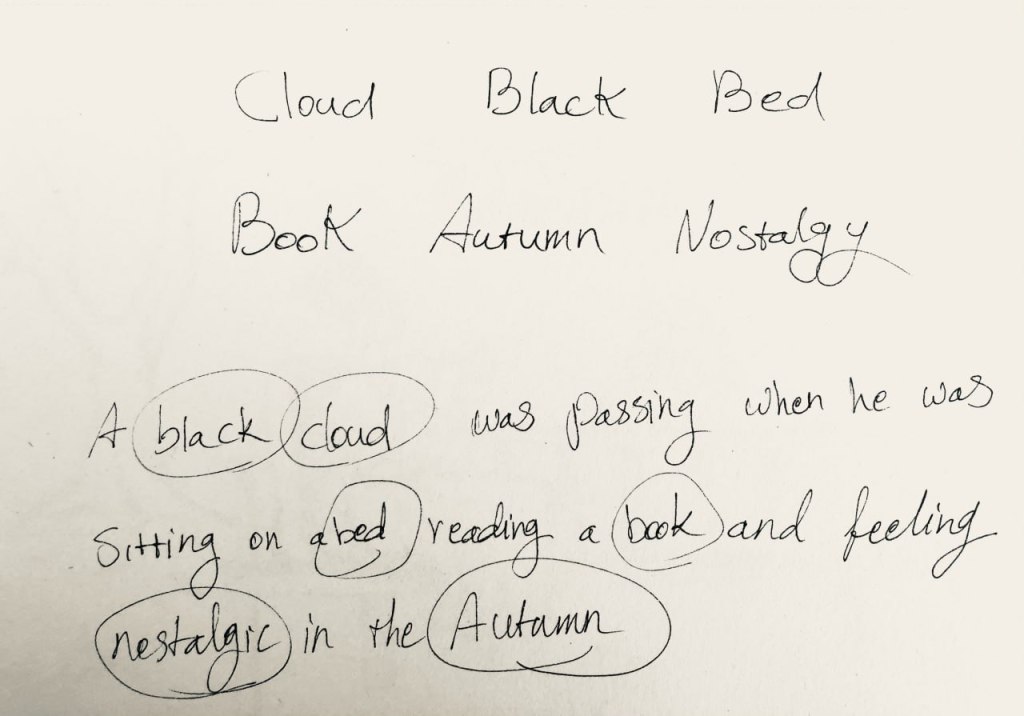 Cloud Black Bed
Book Autumn Nostalgy
A black cloud was passing when he was
Sitting on a bed reading a book and feeling
nestalgic in the Autumn